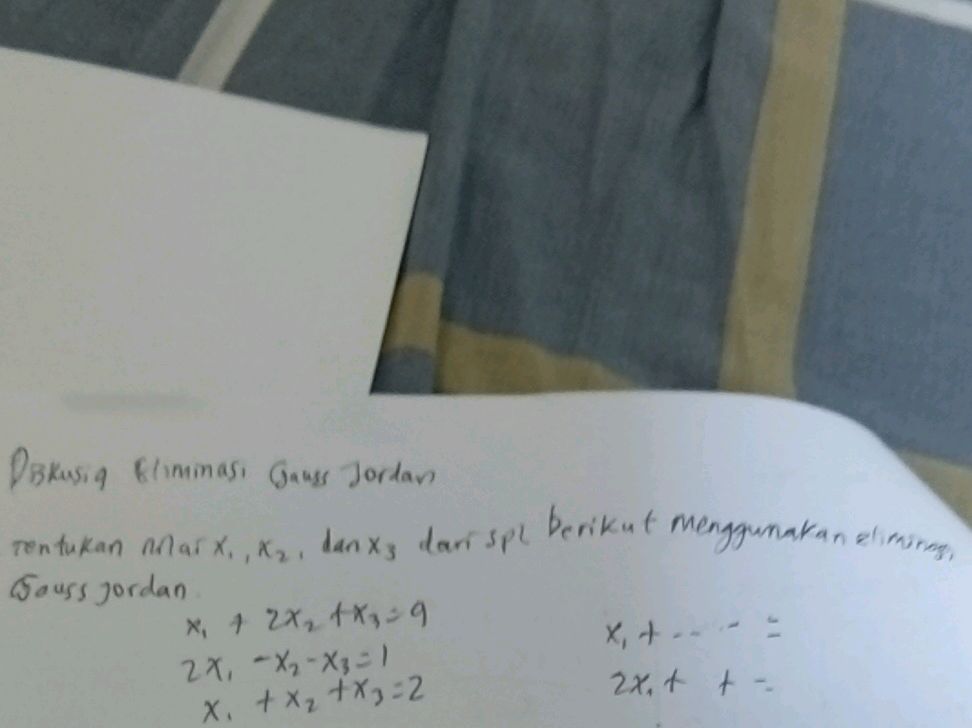 Diskusi 9 Eliminasi Gauss Jordan
Tentukan nilai x₁, x₂, dan x₃ dari spl berikut menggunakan eliminasi
Gauss jordan.
x₁ + 2x₂ + x₃ = 9
2x₁ - x₂ - x₃ = 1
x₁ + x₂ + x₃ = 2
x₁ + -- - - =
2x₁ + + =